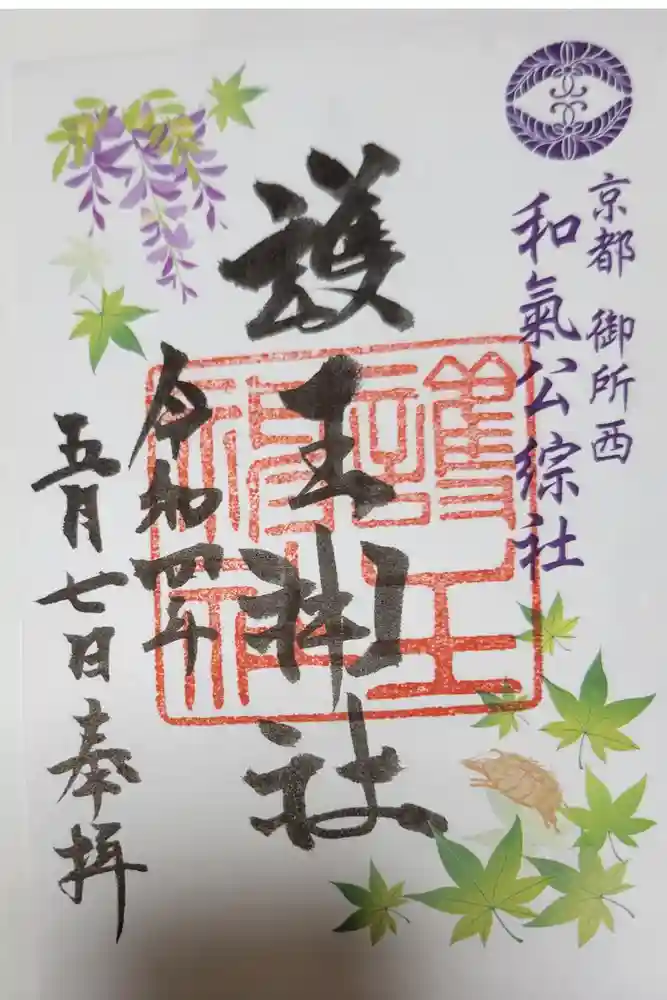 京都 御所西
和氣公綜社
護王神社
令和四年
五月七日奉拝
護王神社